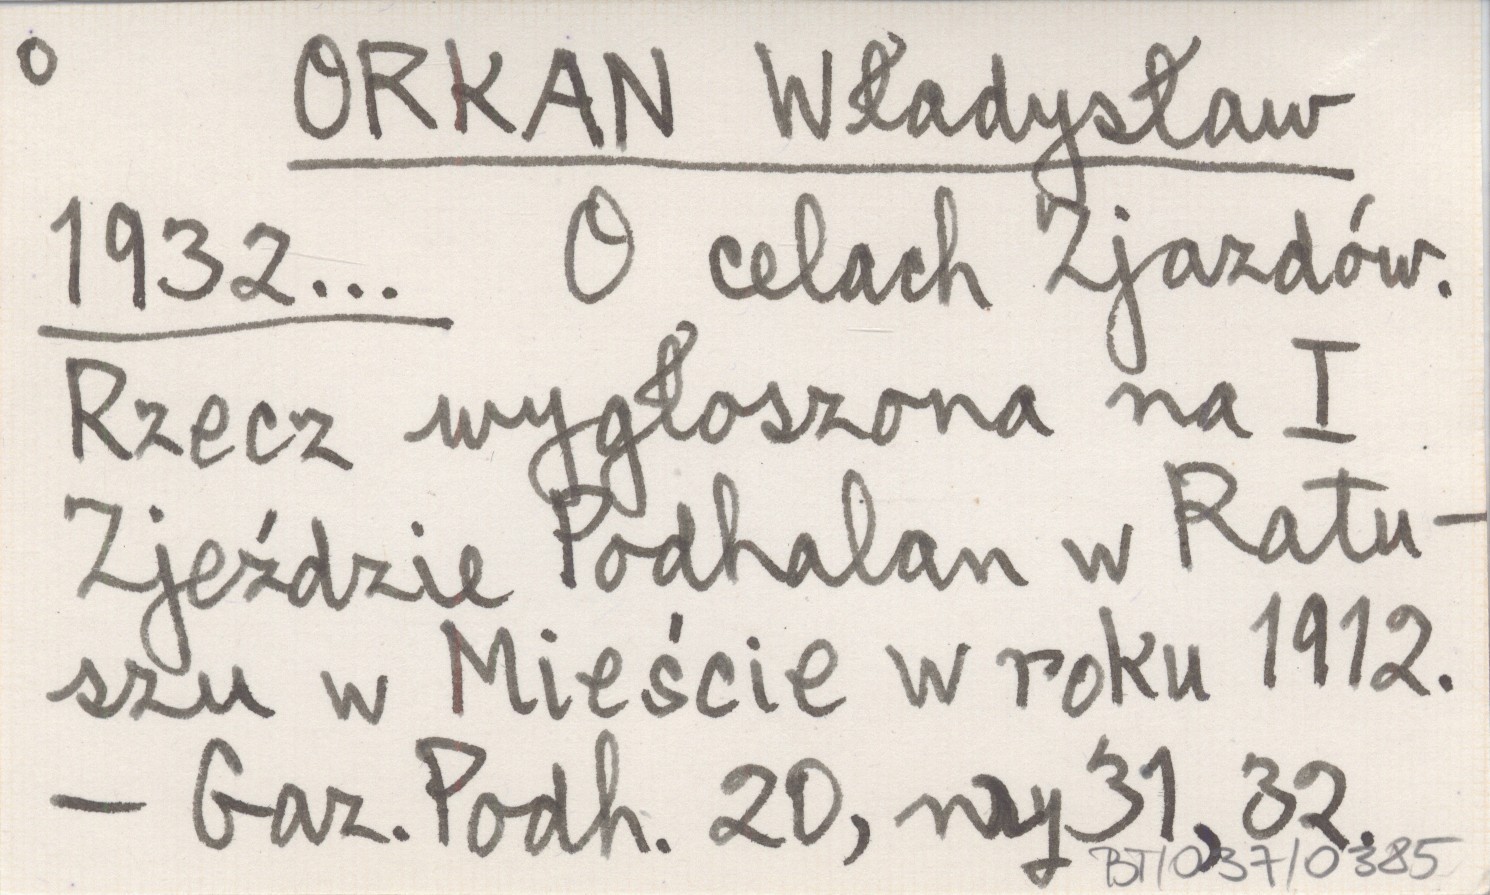 o ORKAN Władysław
1932... O celach Zjazdów.
Rzecz wygłoszona na I
Zjeździe Podhalan w Ratu-
szu w Mieście w roku 1912.
— Gaz. Podh. 20, nry 31, 32.
BT/037/0385